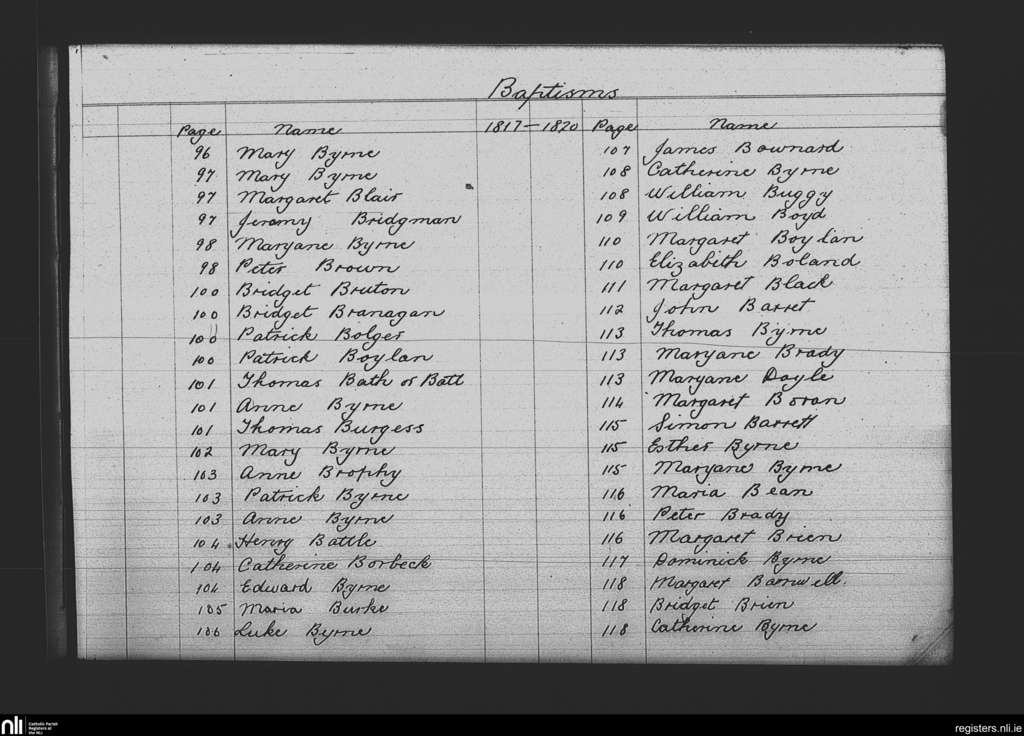 Baptisms
Page Name 1817–1820 Page Name
96 Mary Byrne
97 Mary Byrne
97 Margaret Blair
97 Jeremy Bridgman
98 Maryane Byrne
98 Peter Brown
100 Bridget Bruton
100 Bridget Branagan
100 Patrick Bolger
100 Patrick Boylan
101 Thomas Bath or Batt
101 Anne Byrne
101 Thomas Burgess
102 Mary Byrne
103 Anne Brophy
103 Patrick Byrne
103 Anne Byrne
104 Henry Battle
104 Catherine Borbeck
104 Edward Byrne
105 Maria Burke
106 Luke Byrne
107 James Bownard
108 Catherine Byrne
108 William Buggy
109 William Boyd
110 Margaret Boylan
110 Elizabeth Boland
111 Margaret Black
112 John Barret
113 Thomas Byrne
113 Maryane Brady
113 Maryane Doyle
114 Margaret Boran
115 Simon Barrett
115 Esther Byrne
115 Maryane Byrne
116 Maria Bean
116 Peter Brady
116 Margaret Brien
117 Dominick Byrne
118 Margaret Barnwell.
118 Bridget Brien
118 Catherine Byrne
nli
Catholic Parish
Registers at
the NLI
registers.nli.ie